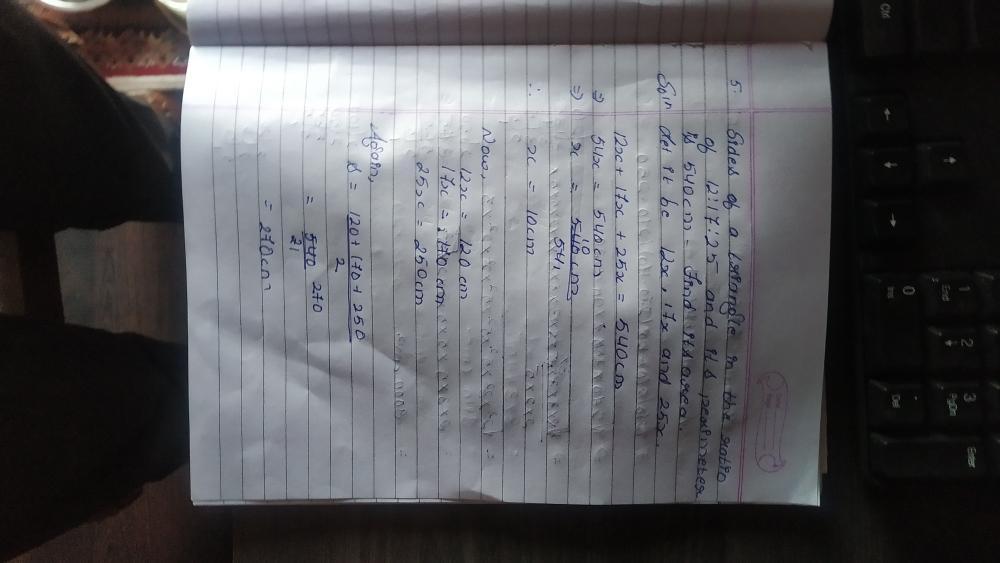 5. Sides of a triangle in the ratio
of 12:17:25 and its perimeter
is 540cm. Find its area.
Soln Let it be 12x, 17x and 25x.
12x + 17x + 25x = 540cm
⇒ 54x = 540cm
⇒ x = 540cm 10
54 1
∴ x = 10cm
Now,
12x = 120cm
17x = 170cm
25x = 250cm
Again,
S = 120+170+250
2
= 540 270
2 1
= 270cm
Ctrl
←
↓
↑
→
0
Ins
1
End
2
3
PgDn
.
Del
Enter